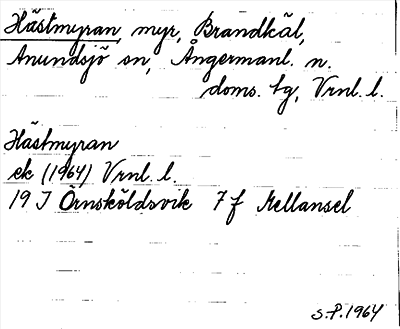 Hästmyran, myr, Brandkäl,
Anundsjö sn, Ångermanl. n.
doms. tg, Vrnl. l.
Hästmyran
ek (1964) Vrnl. l.
19 J Örnsköldsvik 7 f Mellansel
S.P. 1964